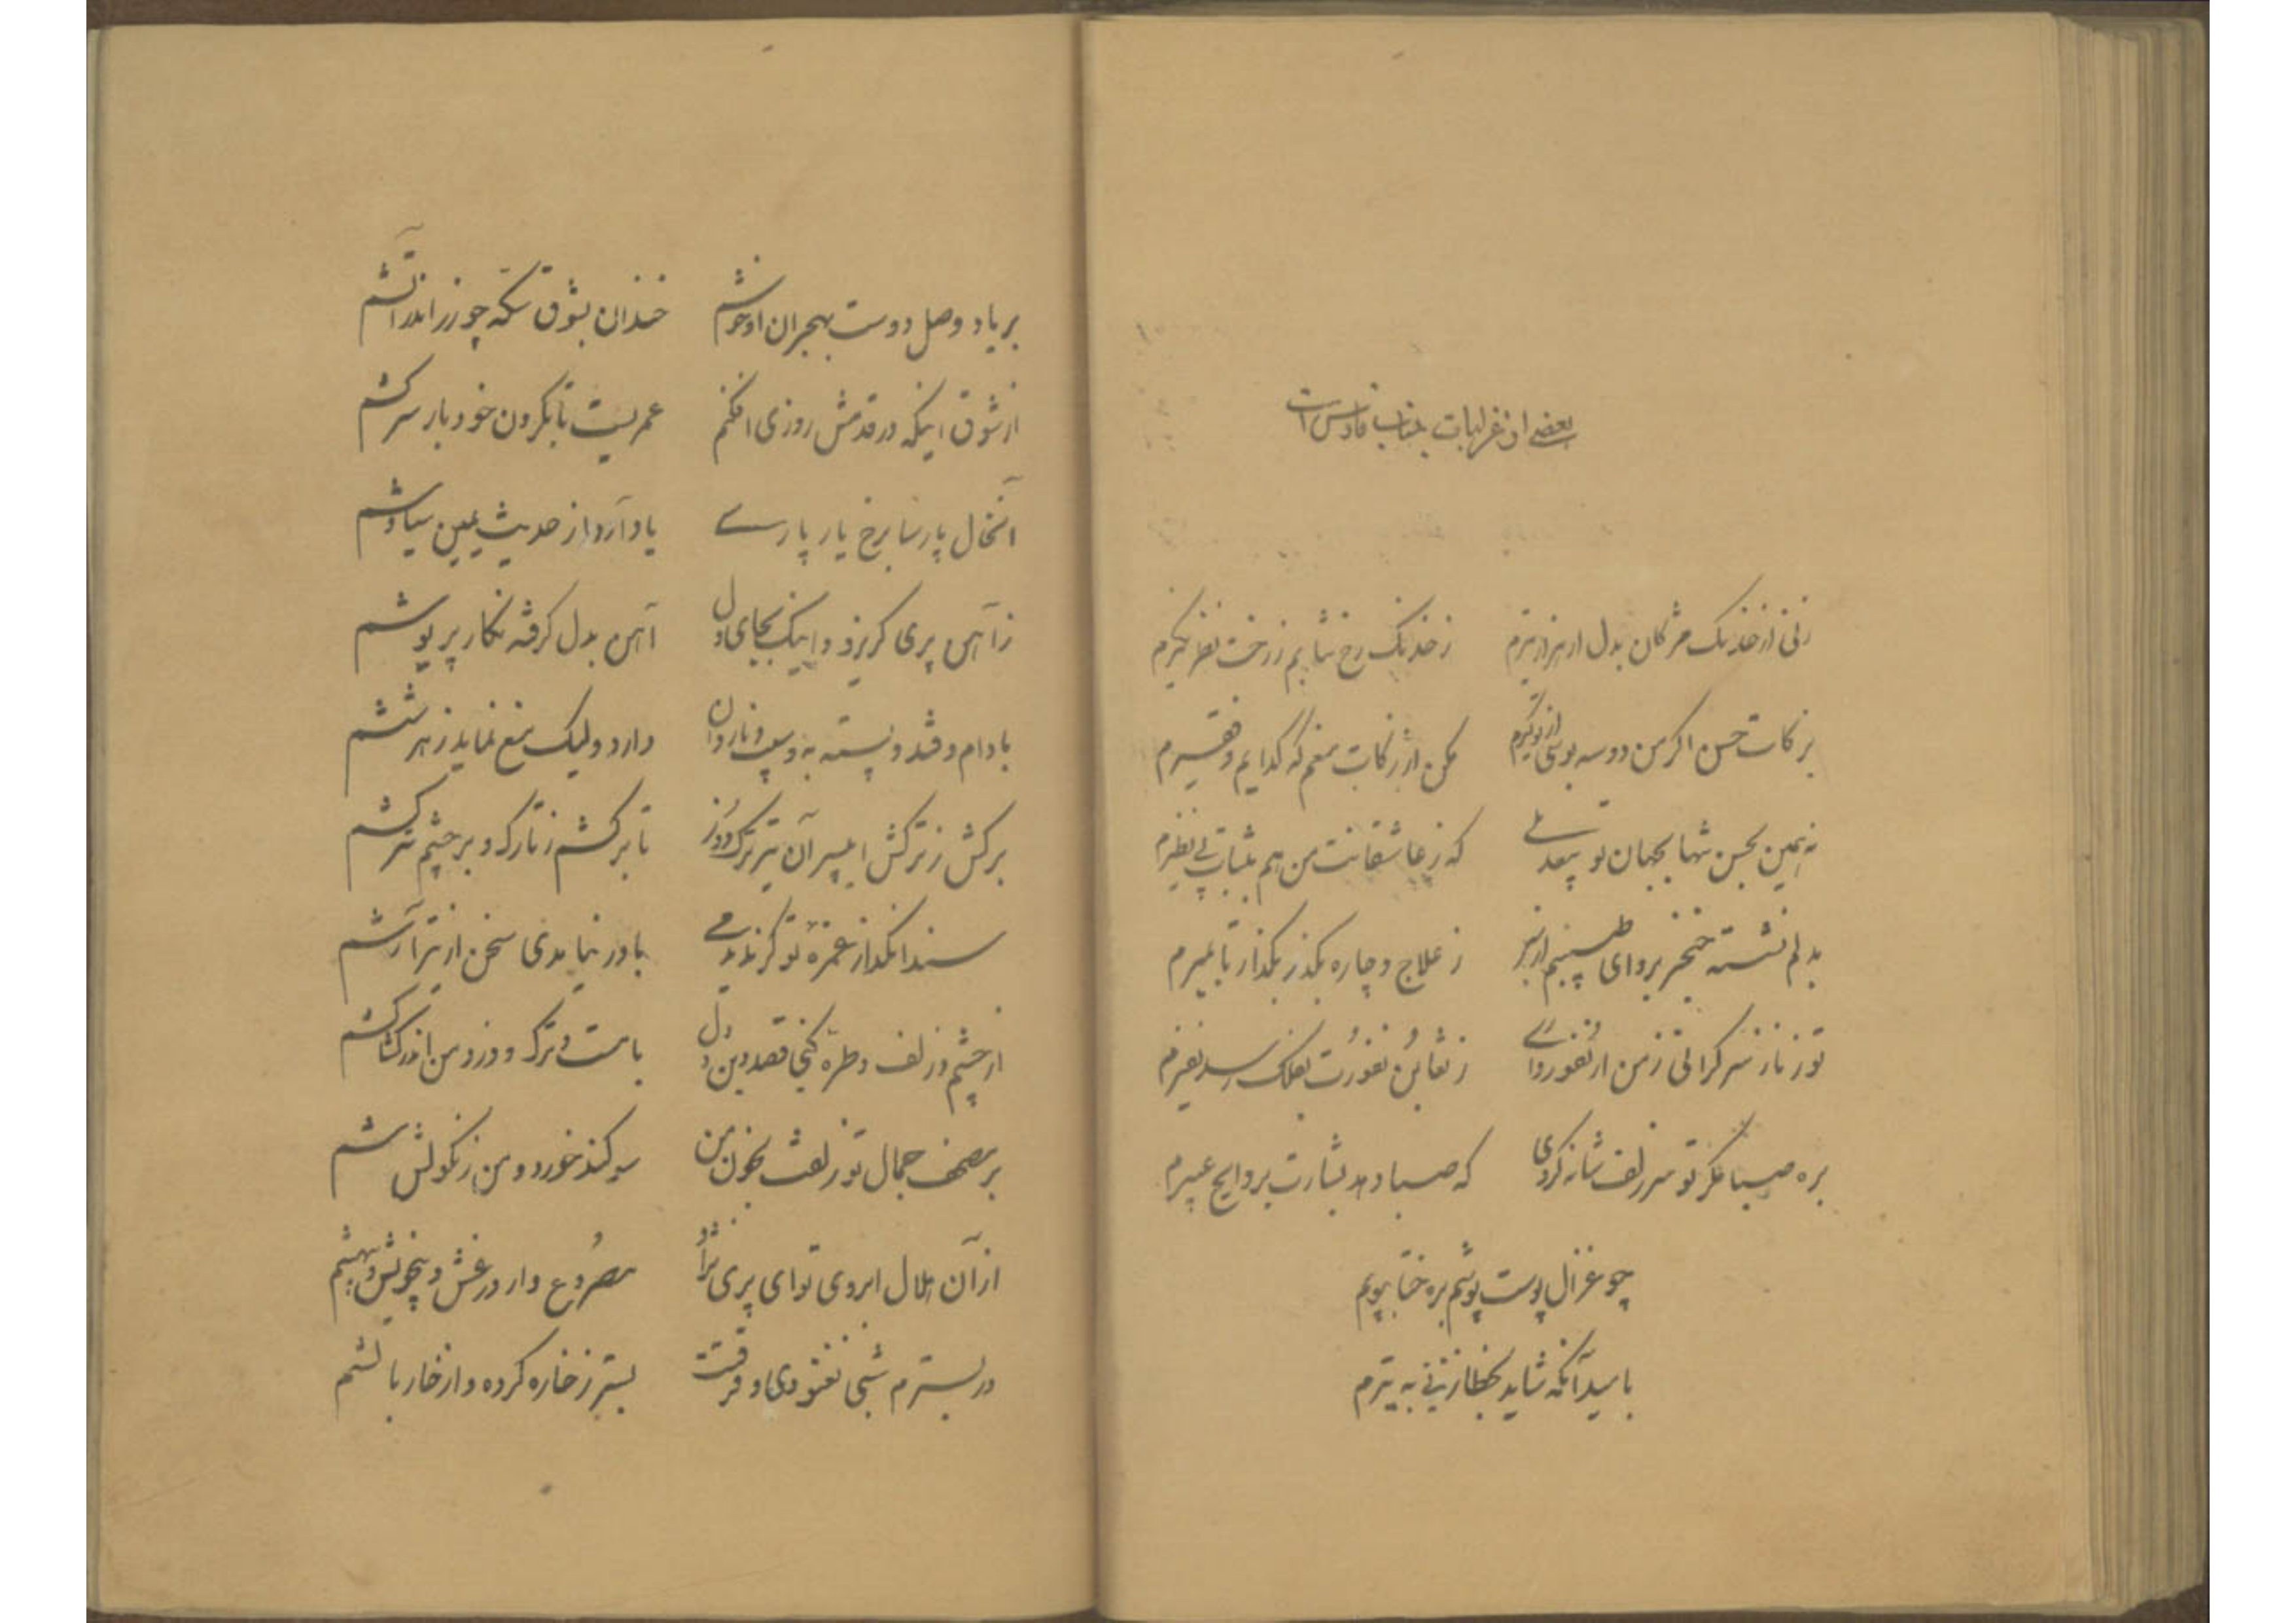 بعضی از غزلیات جناب قادس است
زنی از خدنگ مژکان بدل ار هزار تیرم ز خدنگ رخ نتابم ز رخت نظر نکیرم
بزکات حسن اکر من دو سه بوسی از تو کیرم مکن از زکات منعم که کدایم و فقیرم
نه همین بحسن تنها بجهان تو بیعدیلی که ز عاشقانت من هم بثبات بی نظیرم
بدلم نشسته خنجر برو ای طبیبم از سر ز علاج و چاره بکذر بکذار تا بمیرم
تو ز ناز سر کرانی ز من از نفور وازی نفورت بفلک رسد نفیرم
بره صبا مکر تو سر زلف شانه کردی که صبا دهد بشارت بروایح عبیرم
چو غزال پوست پوشم بره ختا بپویم
بامید آنکه شاید بخطا زنی به تیرم
بر یاد وصل دوست بهجران او خوشم خندان بشوق سکه چو زر اندر آتشم
از شوق اینکه در قدمش روزی افکنم عمریست تا بکردن خود بار سر کشم
آنخال پارسا برخ یار پارسی یاد آرد از حدیث یمین سیاوشم
ز آهن پری کریزد و اینک بجای دل آهن بدل کرفته نکار پریوشم
بادام و قند و پسته به و سیب و ناردان دارد ولیک منع نماید ز هر ششم
برکش ز ترکش ای پسر آن تیر ترک دوز تا برکشم ز تارک و بر چشم تر کشم
سندانکداز غمزه تو کر ندیدمی باور نیامدی سخن از تیر آرشم
از چشم و زلف و طره کنی قصد دین و دل با مست و ترک و دزد من اندر کشاکشم
بر مصحف جمال تو زلفت بخون من سوکند خورد و من ز نکولش
از آن هلال ابروی تو ای پری نژاد مصروع وار در غش و بیخویش و بیهشم
در بسترم شبی نغنودی و فرقتت بستر ز خاره کرده و از خار بالشم